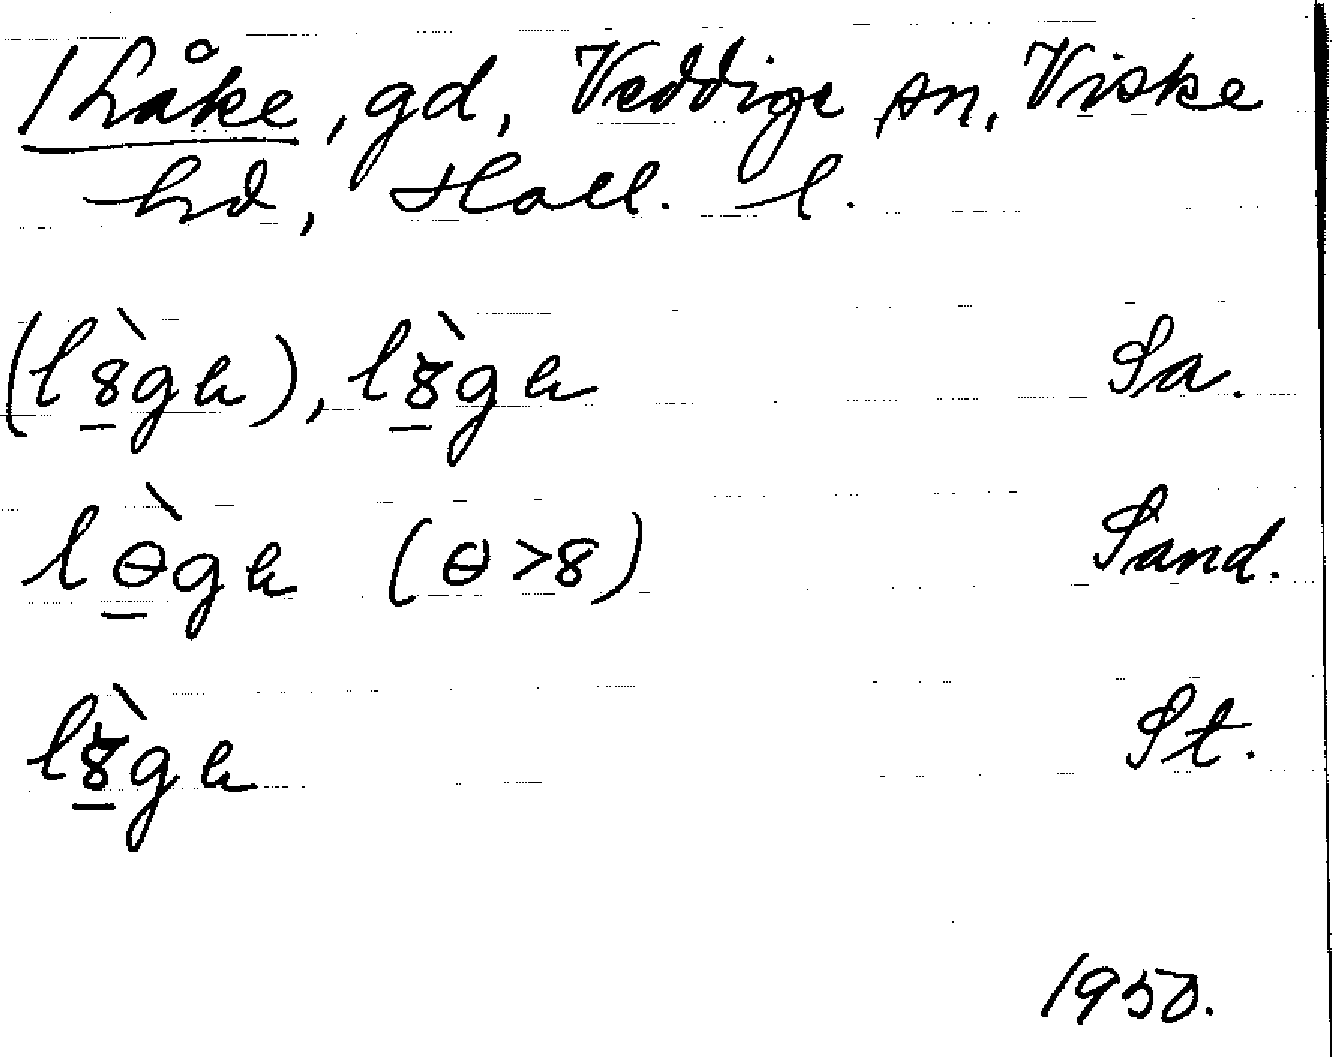 1 Låke, gd, Veddige sn, Viske
hd, Hall. l.
(l8̲̀gə), l8̲̀gə Sa.
lɵ̲̀gə (ɵ>8) Sand.
l8̲̀gə St.
1950.